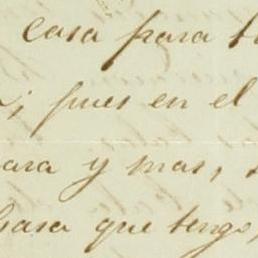 casa para
; pues en el
ara y mas,
basa que tengo,